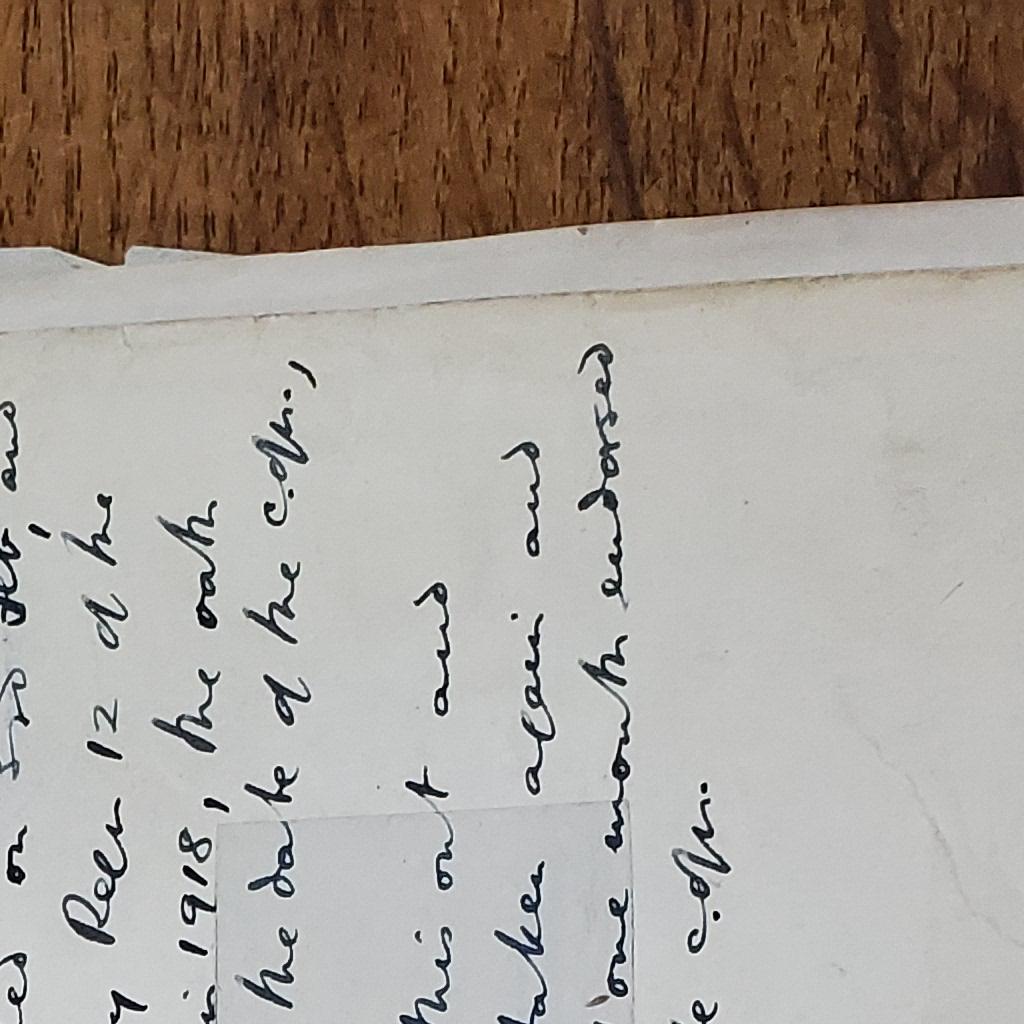 ed on 5th Feb and
y Reln 12 of the
in 1918, the oath
the date of the c.opn.,
this out and
taken again and
one month endorsed
e c.opn.